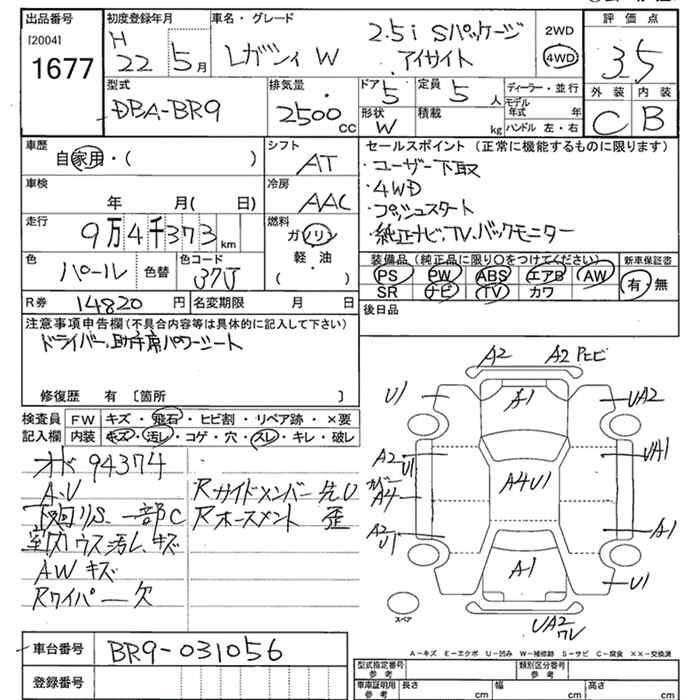 出品番号 初度登録年月 車名・グレード 2WD 評価点
[2004] H 2.5i Sパッケージ
1677 22 5月 レガシィ W アイサイト 4WD 3.5
型式 排気量 ドア 定員 ディーラー・並行 外装 内装
DBA-BR9 2500cc 5 5人 モデル年式 年
形状 積載 C B
W kg ハンドル 左・右
車歴 シフト セールスポイント (正常に機能するものに限ります)
自家用・( ) AT ・ユーザー下取
車検 冷房 ・4WD
年 月( 日) AAC ・プッシュスタート
走行 燃料 ・純正ナビ,TV,バックモニター
9万4千373km ガソリン
色 色替 色コード 軽油 装備品 (純正品に限り○をつけてください) 新車保証書
パール 37J ( ) PS PW ABS エアB AW 有・無
R券 14820円 名変期限 月 日 SR ナビ TV カワ
注意事項申告欄(不具合内容等は具体的に記入して下さい) 後日品
ドライバー,助手席パワーシート
修復歴 有 〔箇所 〕
検査員 FW キズ・飛石・ヒビ割・リペア跡・×要
記入欄 内装 キズ・汚し・コゲ・穴・スレ・キレ・破レ
A2 A2 Pヒビ
U1 A1 UA2
A2 U1 UA1
A4 A4U1
A2 U1 A1
A1 U1
スペア UA2
94374
A・U Rサイドメンバー先U
下回りS、一部C Rホースメント 歪
汚し、キズ
AWキズ
Rワイパー欠
A-キズ E-エクボ U-凹み W-補修跡 S-サビ C-腐食 ××-交換済
車台番号 BR9-031056
登録番号
型式指定番号 参考 類別区分番号 参考
車庫証明用 参考 長さ cm 幅 cm 高さ cm